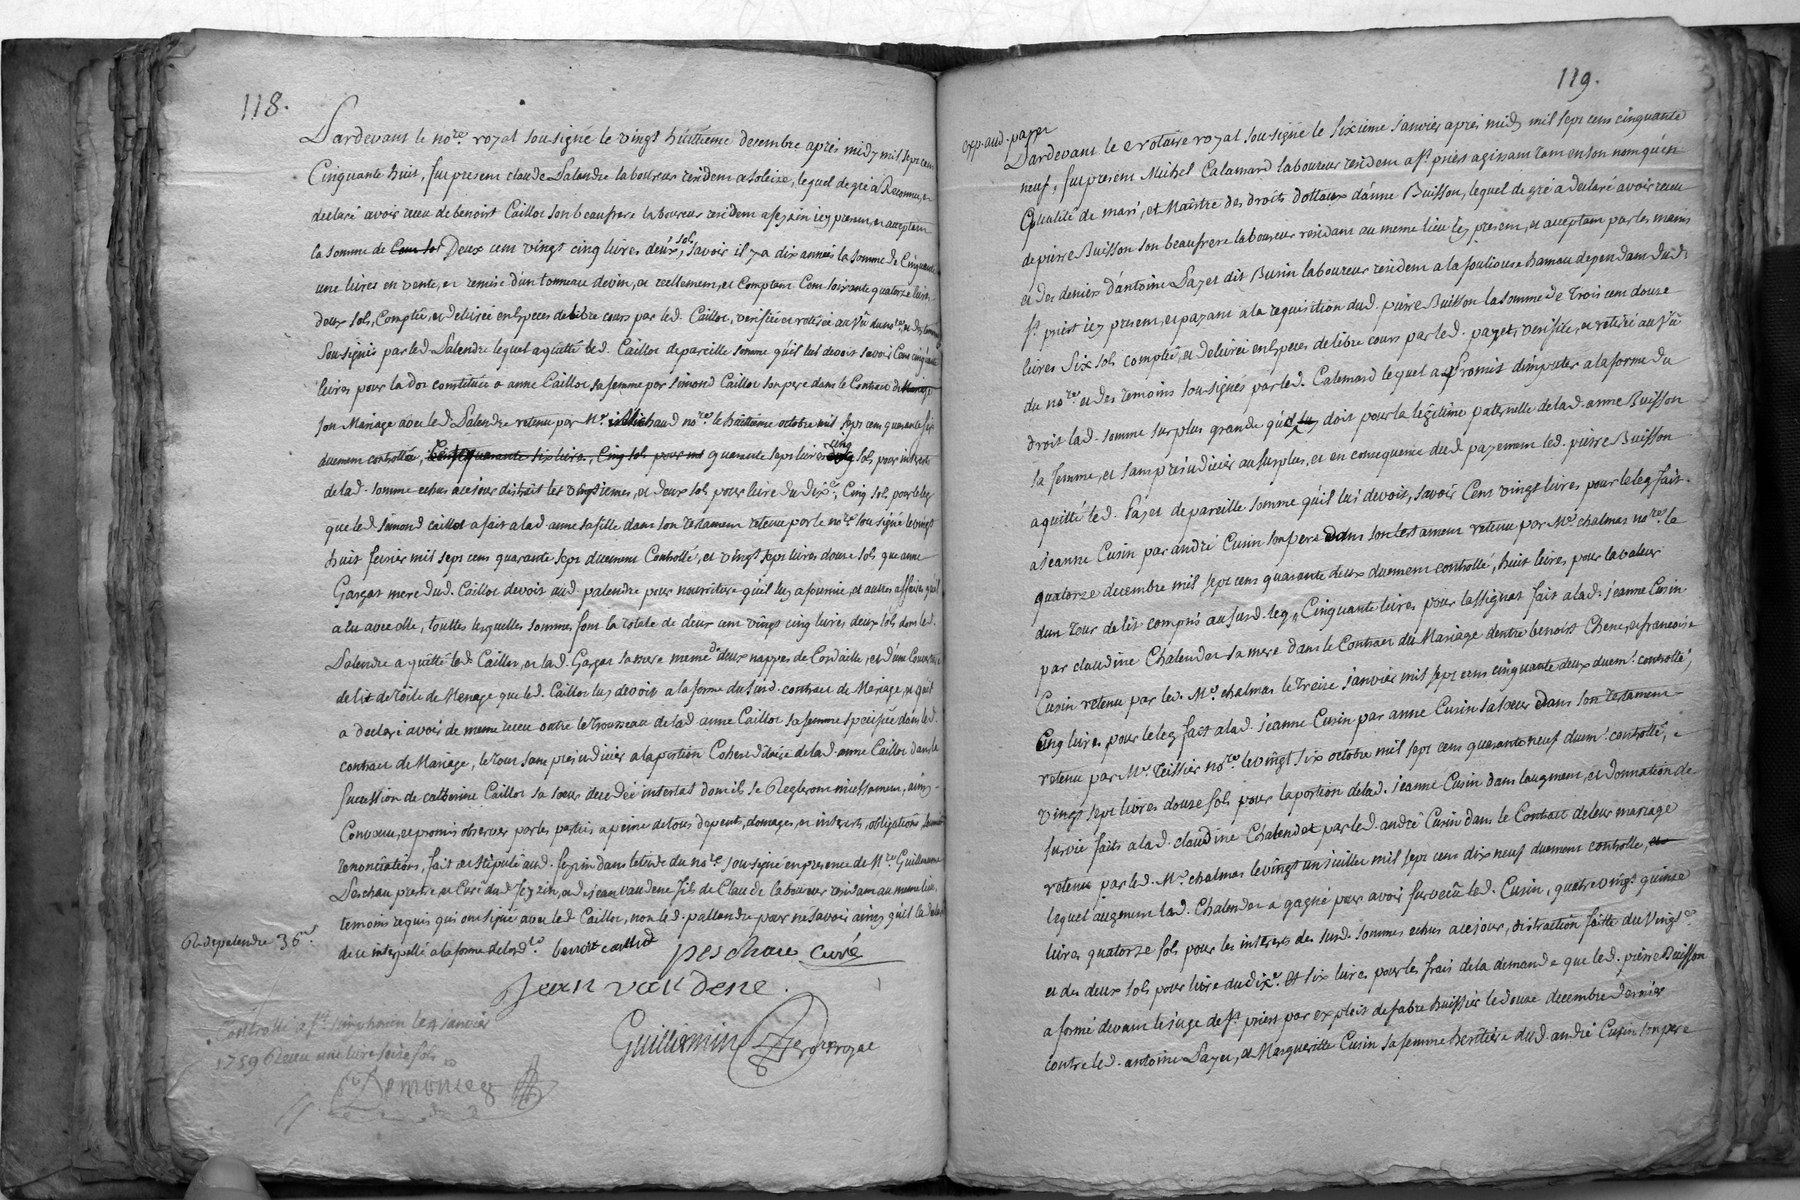 118.
Pardevant le no.re royal sousigné le vingt huitieme decembre après midy mil sept cent
Cinquante huit, fut present claude Palendre laboureur resident a Soleize, lequel de gré a Reconnu, et
declaré avoir receu de benoist Caillot son beaufrere laboureur resident a feyzin icy present, et acceptant
la somme de Deux cent vingt cinq livres deux sols, savoir il y a dix années la somme de Cinquante
une livres en vente, et remise d'un tonneau de vin, et reellement, et comptant Cent soixante quatorze livres
deux sols, Comptée, et delivrée en Especes de libre cours par led. Caillot, verifiée et retirée au vû du no.re, et des temoins
sousignés par led. Palendre lequel a quitté led. Caillot de pareille somme qu'il lui devoit savoir Cent cinquante
livres pour la dot constituée a anne Caillot sa femme par simond Caillot son pere dans le Contract de
son Mariage avec led. Palendre retenu par M.e Michaud no.re le huitieme octobre mil sept cent quarante six
duement controllée, quarante sept livres cinq sols pour interets
de lad. somme echus a ce jour distrait les vingtiemes, et deux sols pour livre du dix.e, Cinq sols pour le leg
que led. simond caillot a fait a lad. anne sa fille dans son testament retenu par le no.re sousigné le vingt
huit fevrier mil sept cent quarante sept duement Controllé, et vingt sept livres douze sols que anne
Garget mere dud. Caillot devoit aud. palendre pour nourriture qu'il luy a fournie, et autres affaires qu'il
a eu avec elle, touttes lesquelles sommes font la totale de deux cent vingt cinq livres deux sols dont led.
Palendre a quitté led. Caillot, et lad. Garget sa mere meme deux nappes de Cordaille, et d'une Couverture
de lit de toile de Menage que led. Caillot luy devoit a la forme du susd. contract de Mariage, et qu'il
a declaré avoir de meme receu outre le trousseau de lad. anne Caillot sa femme specifiée dans led.
contract de Mariage, le tout sans prejudicier a la portion Coheréditaire de lad. anne Caillot dans la
succession de catherine Caillot sa sœur decedée intestat dont ils se Regleront incessament, ainsy
Convenu, et promis observer par les parties a peine de tous depents, domages, et interets, obligations
renonciations, fait et stipulé aud. feyzin dans l'etude du no.re sousigné en presence de M.re Guillaume
Peschau pretre et Curé dud. feyzin, et de jean vaudene fils de Claude laboureur resident au meme lieu,
temoins requis qui ont signé avec led. Caillot, non led. pallendre pour ne savoir ainsy qu'il la declaré
de ce interpellé a la forme de lord.ce benoit caillot peschau curé
R. de palendre 36 s.
jean vaudene.
Guillermin no.re royal
Controllé a s.t simphorien le 4 janvier
1759 Receu une livre seize sols
119.
exp. aud. payet
Pardevant le Notaire royal sousigné le sixieme janvier après midy mil sept cent cinquante
neuf, fut present Michel Calamard laboureur resident a s.t priest agissant tant en son nom qu'en
Qualité de mari, et Maître des droits dottaux d'anne Buisson, lequel de gré a declaré avoir receu
de pierre Buisson son beaufrere laboureur residant au meme lieu icy present, et acceptant par les mains
et des deniers d'antoine Payet dit Burin laboureur resident a la fouliouse hameau dependant dud.
s.t priest icy present, et payant a la requisition dud. pierre Buisson la somme de Trois cent douze
livres six sols comptée, et delivrée en Especes de libre cours par led. payet, verifiée, et retirée au vû
du no.re et des temoins sousignés par led. Calemard lequel a promis d'imputer a la forme du
droit lad. somme sur plus grande qu'il doit pour la légitime paternelle de lad. anne Buisson
sa femme, et sans prejudicier au surplus, et en consequence dud. payement led. pierre Buisson
a quitté led. Payet de pareille somme qu'il lui devoit, savoir Cent vingt livres pour le leg fait
a jeanne Cusin par andré Cusin son pere dans son testament retenu par M.e chalmas no.re le
quatorze decembre mil sept cent quarante deux duement controllé, huit livres pour la valeur
d'un tour de lit compris au susd. leg, Cinquante livres pour l'assignat fait a lad. jeanne Cusin
par claudine Chalendat sa mere dans le Contract du Mariage d'entre benoist Chene, et francoise
Cusin retenu par led. M.e chalmas le treize janvier mil sept cent cinquante deux duem.t controllé,
Cinq livres pour le leg fait a lad. jeanne Cusin par anne Cusin sa sœur dans son testament
retenu par M.e Teissier no.re le vingt six octobre mil sept cent quarante neuf duem.t controllé, e
vingt sept livres douze sols pour la portion de lad. jeanne Cusin dans l'augment, et donnation de
survie faits a lad. claudine Chalendat par led. andré Cusin dans le Contract de leur mariage
retenu par led. M.e chalmas le vingt un juillet mil sept cent dix neuf duement controllé,
lequel augment lad. Chalendat a gagné pour avoir survecu led. Cusin, quatre vingt quinze
livres quatorze sols pour les interets des susd. sommes echus a ce jour, distraction faitte du vingt.e
et des deux sols pour livre du dix.e et six livres pour les frais de la demande que led. pierre Buisson
a formé devant le juge de s.t priest par exploit de fabre huissier le douze decembre dernier
contre led. antoine Payet, et Margueritte Cusin sa femme heritière dud. andré Cusin son pere